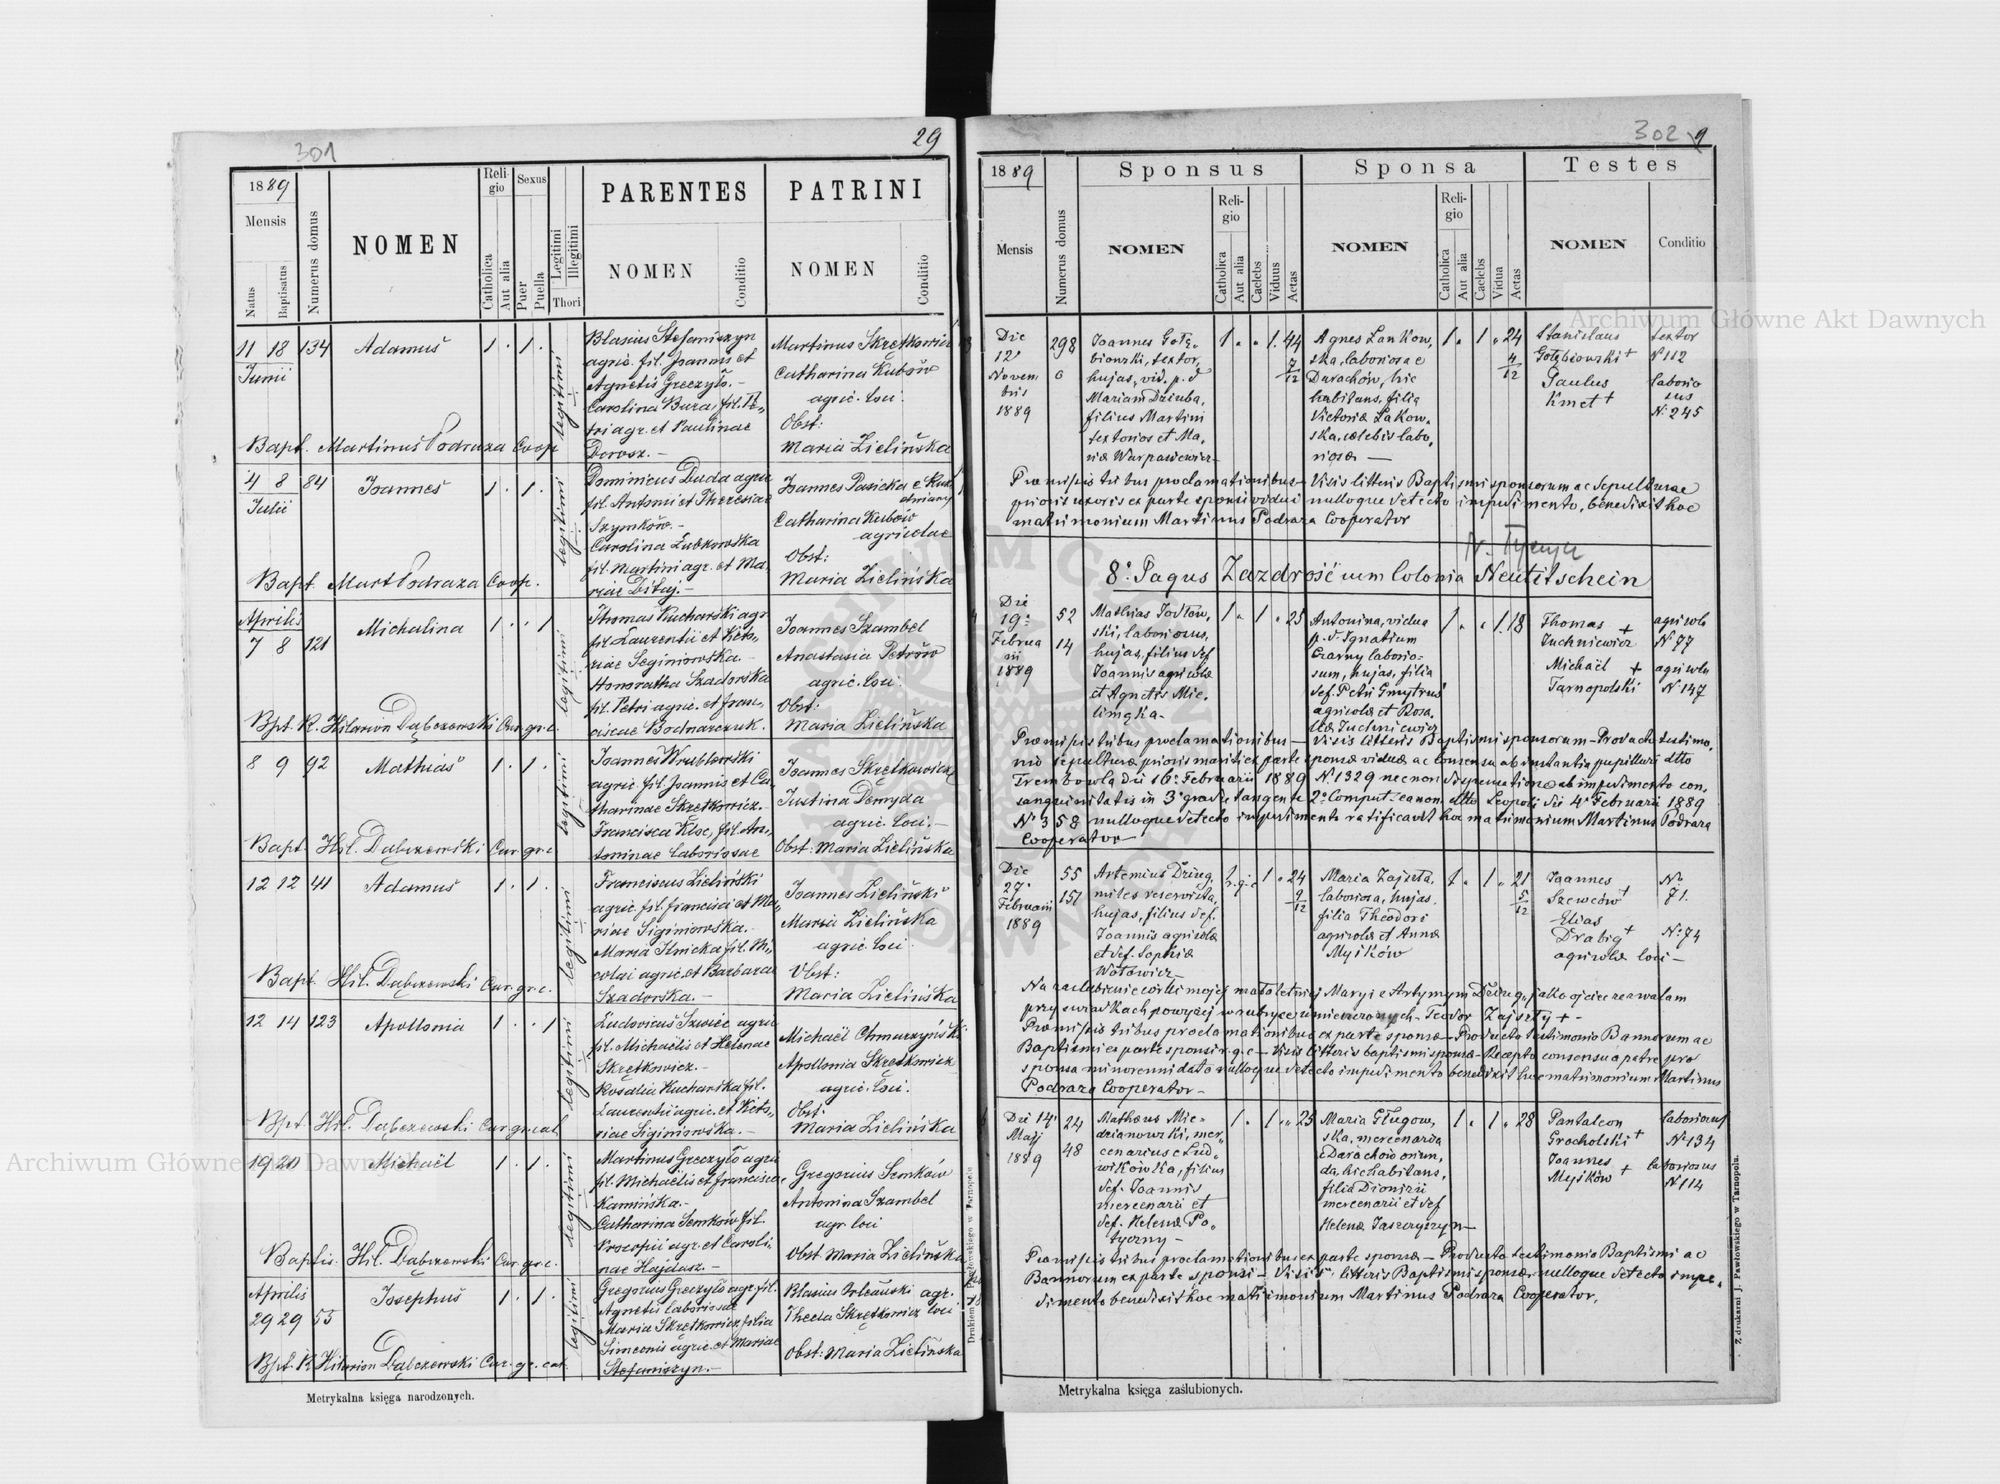 301
29
1889
Mensis
Natus
Baptisatus
Numerus domus
NOMEN
Religio
Catholica
Aut alia
Sexus
Puer
Puella
Legitimi
Illegitimi
Thori
PARENTES
NOMEN
Conditio
PATRINI
NOMEN
Conditio
11 18 134 Adamus 1 . 1 .
Junii
legitimi
Blasius Stefaniszyn
agric. fil. Joannis et
Agnetis Greczyło.-
Carolina Bura, fil. Pe-
tri agr. et Paulinae
Dorosz.-
Martinus Skrętkowicz
Catharina Kubów
agric. loci.
Obst:
Maria Zielińska
Bapt. Martinus Podraza Coop
4 8 84 Joannes 1 . 1 .
Julii
legitimi
Dominicus Duda agric
fil. Antoni et Theresiae
Szymków.-
Carolina Zubkowska
fil. Martini agr. et Ma-
riae
Joannes Pasicka e
Catharina Kubów
agricolae
Obst:
Maria Zielińska
Bapt. Mart Podraza Coop.
Aprilis
7 8 121 Michalina 1 . . 1
legitimi
Thomas Kucharski agr
fil. Laurentii et Victo-
riae Seginiowska.-
Honoratha Szadorska
fil. Petri agric. et Fran-
ciscae Bodnarczuk.
Joannes Szambel
Anastasia Petrów
agric. loci.
Obst:
Maria Zielińska
Bpt. R. Hilarion Dąbczewski Cur. gr. c.
8 9 92 Mathias 1 . 1 .
legitimi
Joannes Wrublewski
agric. fil. Joannis et Ca-
tharinae Skrętkowicz.-
Francisca Kloc, fil. An-
toninae laboriosae
Joannes Skrętkowicz
Justina Demyda
agric. loci.-
Obst: Maria Zielińska
Bapt. Hil. Dąbczewski Cur. gr. c
12 12 41 Adamus 1 . 1 .
legitimi
Franciscus Zieliński
agric. fil. Francisci et Ma-
riae Siginiowska.
Maria Ilnicka fil. Ni-
colai agric. et Barbarae
Szadorska.-
Joannes Zieliński
Maria Zielińska
agric. loci
Obst:
Maria Zielińska
Bapt. Hil. Dąbczewski Cur. gr. c.
12 14 123 Apollonia 1 . . 1
legitimi
Ludovicus Szwiec agric
fil. Michaëlis et Helenae
Skrętkowicz.-
Rosalia Kucharska fil.
Laurentii agric. et Victo-
riae Siginiowska.-
Michaël Chmurzyński
Apollonia Skrętkowicz
agric. loci.
Obst:
Maria Zielińska
Bpt. Hil. Dąbczewski Cur. gr. cat
19 20 Michaël 1 . 1 .
legitimi
Martinus Greczyło agric
fil. Michaëlis et Franciscae
Kamińska.-
Catharina Semków fil.
Procopii agr. et Caroli-
nae Hajdasz.-
Gregorius Semków
Antonina Szambel
agr. loci
Obst Maria Zielińska
Baptis. Hil. Dąbczewski Cur. gr. c.
Aprilis
29 29 55 Josephus 1 . 1 .
legitimi
Gregorius Greczyło agr. fil.
Agnetis laboriosae
Maria Skrętkowicz filia
Simeonis agric. et Mariae
Stefaniszyn.-
Blasius agr.
Thecla Skrętkowicz loci
Obst: Maria Zielińska
Bpt. R Hilarion Dąbczewski Cur. gr. cat.
Metrykalna księga narodzonych.
302
9
1889
Mensis
Numerus domus
Sponsus
NOMEN
Religio
Catholica
Aut alia
Caelebs
Viduus
Aetas
Sponsa
NOMEN
Religio
Catholica
Aut alia
Caelebs
Vidua
Aetas
Testes
NOMEN
Conditio
Die
12a
Novem
bris
1889
298
6
Joannes Gołę-
biowski, textor,
hujas, vid. p. d
Mariam Dziuba,
filius Martini
textoris et Ma-
riæ Warpasiewicz
1 . . 1. 44 7/12
Agnes Lankow-
ska, laboriosa e
Darachów, hic
habitans, filia
Victoriæ Lakow-
ska, cælebis labo-
riosæ —
1 . 1 . 24 4/12
Stanislaus
Gołębiowski +
Paulus
Kmet +
textor
N 112
laborio
sus
N. 245
Præmissis tribus proclamationibus - Visis litteris Baptismi sponsorum ac Sepulturae
prioris uxoris ex parte sponsi vidui nulloque detecto impedimento, benedixit hoc
matrimonium Martinus Podraza Cooperator
8o. Pagus Zazdrość cum Colonia Neutitschein
Die
19a
Februa
rii
1889
52
14
Mathias Jodłow-
ski, laboriosus,
hujas, filius def
Joannis agricolæ
et Agnetis Mie-
1 . 1 . 25
Antonina, vidua
p. d. Ignatium
Czarny laborio-
sum, hujas, filia
def. Petri Gmytruś
agricolæ et Rosa-
liæ Juchniewicz
1 . . 1. 18
Thomas +
Juchniewicz
Michaël +
Tarnopolski
agricola
N 77
agricola
N 147
Præmissis tribus proclamationibus — Visis litteris Baptismi sponsorum - Producto testimo-
nio sepulturæ prioris mariti ex parte sponsæ viduæ ac consensu ab instantia pupillari dtto
Trembowla die 16a Februarii 1889 N 1329 necnon dispensatione ab impedimento con-
sanguinitatis in 3o gradu tangente 2o Comput. canon. dtto Leopoli die 4a Februarii 1889
N 358 nulloque detecto impedimento ratificavit hoc matrimonium Martinus Podraza
Cooperator —
Die
27a
Februarii
1889
55
151
Artemius Dziug,
miles reservista,
hujas, filius def.
Joannis agricolæ
et def. Sophiæ
Wołowicz —
r. g. c 1 . 24 9/12
Maria Zajszta,
laboriosa, hujas,
filia Theodori
agricolæ et Annæ
Myśków
1 . 1 . 21 5/12
Joannes
Szewców +
Elias
Drabig +
agricolæ loci —
No
71.
N. 74
Na zaślubienie córki mojej małoletniej Maryi z Artymym Dziug, jako ojciec zezwalam
przy świadkach powyżej w rubryce umieszczonych - Teodor Zajszty + -
Præmissis tribus proclamationibus ex parte sponsæ - Producto testimonio Bannorum ac
Baptismi ex parte sponsi r. g. c — Visis litteris baptismi sponsæ - Recepto consensu a patre pro
sponsa minorenni dato nulloque detecto impedimento benedixit hoc matrimonium Martinus
Podraza Cooperator -
Die 14a
Maij
1889
24
48
Mathæus Mie-
dzianowski, mer-
cenarius e Lud-
wikówka, filius
def. Joannis
mercenarii et
def. Helenæ Po-
tyczny —
1 . 1 . . 25
Maria Gługow-
ska, mercenaria
e Darachów oriun-
da, hic habitans,
filia Dionizii
mercenarii et def
Helenæ Jaszczyszyn —
1 . 1 . 28
Pantaleon
Grocholski +
Joannes
Myśków +
laboriosus
N 134
laboriosus
N 114
Præmissis tribus proclamationibus ex parte sponsæ — Producto testimonio Baptismi ac
Bannorum ex parte sponsi - Visis litteris Baptismi sponsæ nulloque detecto impe-
dimento benedixit hoc matrimonium Martinus Podraza Cooperator.
Metrykalna księga zaślubionych.
Z drukarni J. Pawłowskiego w Tarnopolu.
Archiwum Główne Akt Dawnych
Archiwum Główne Akt Dawnych